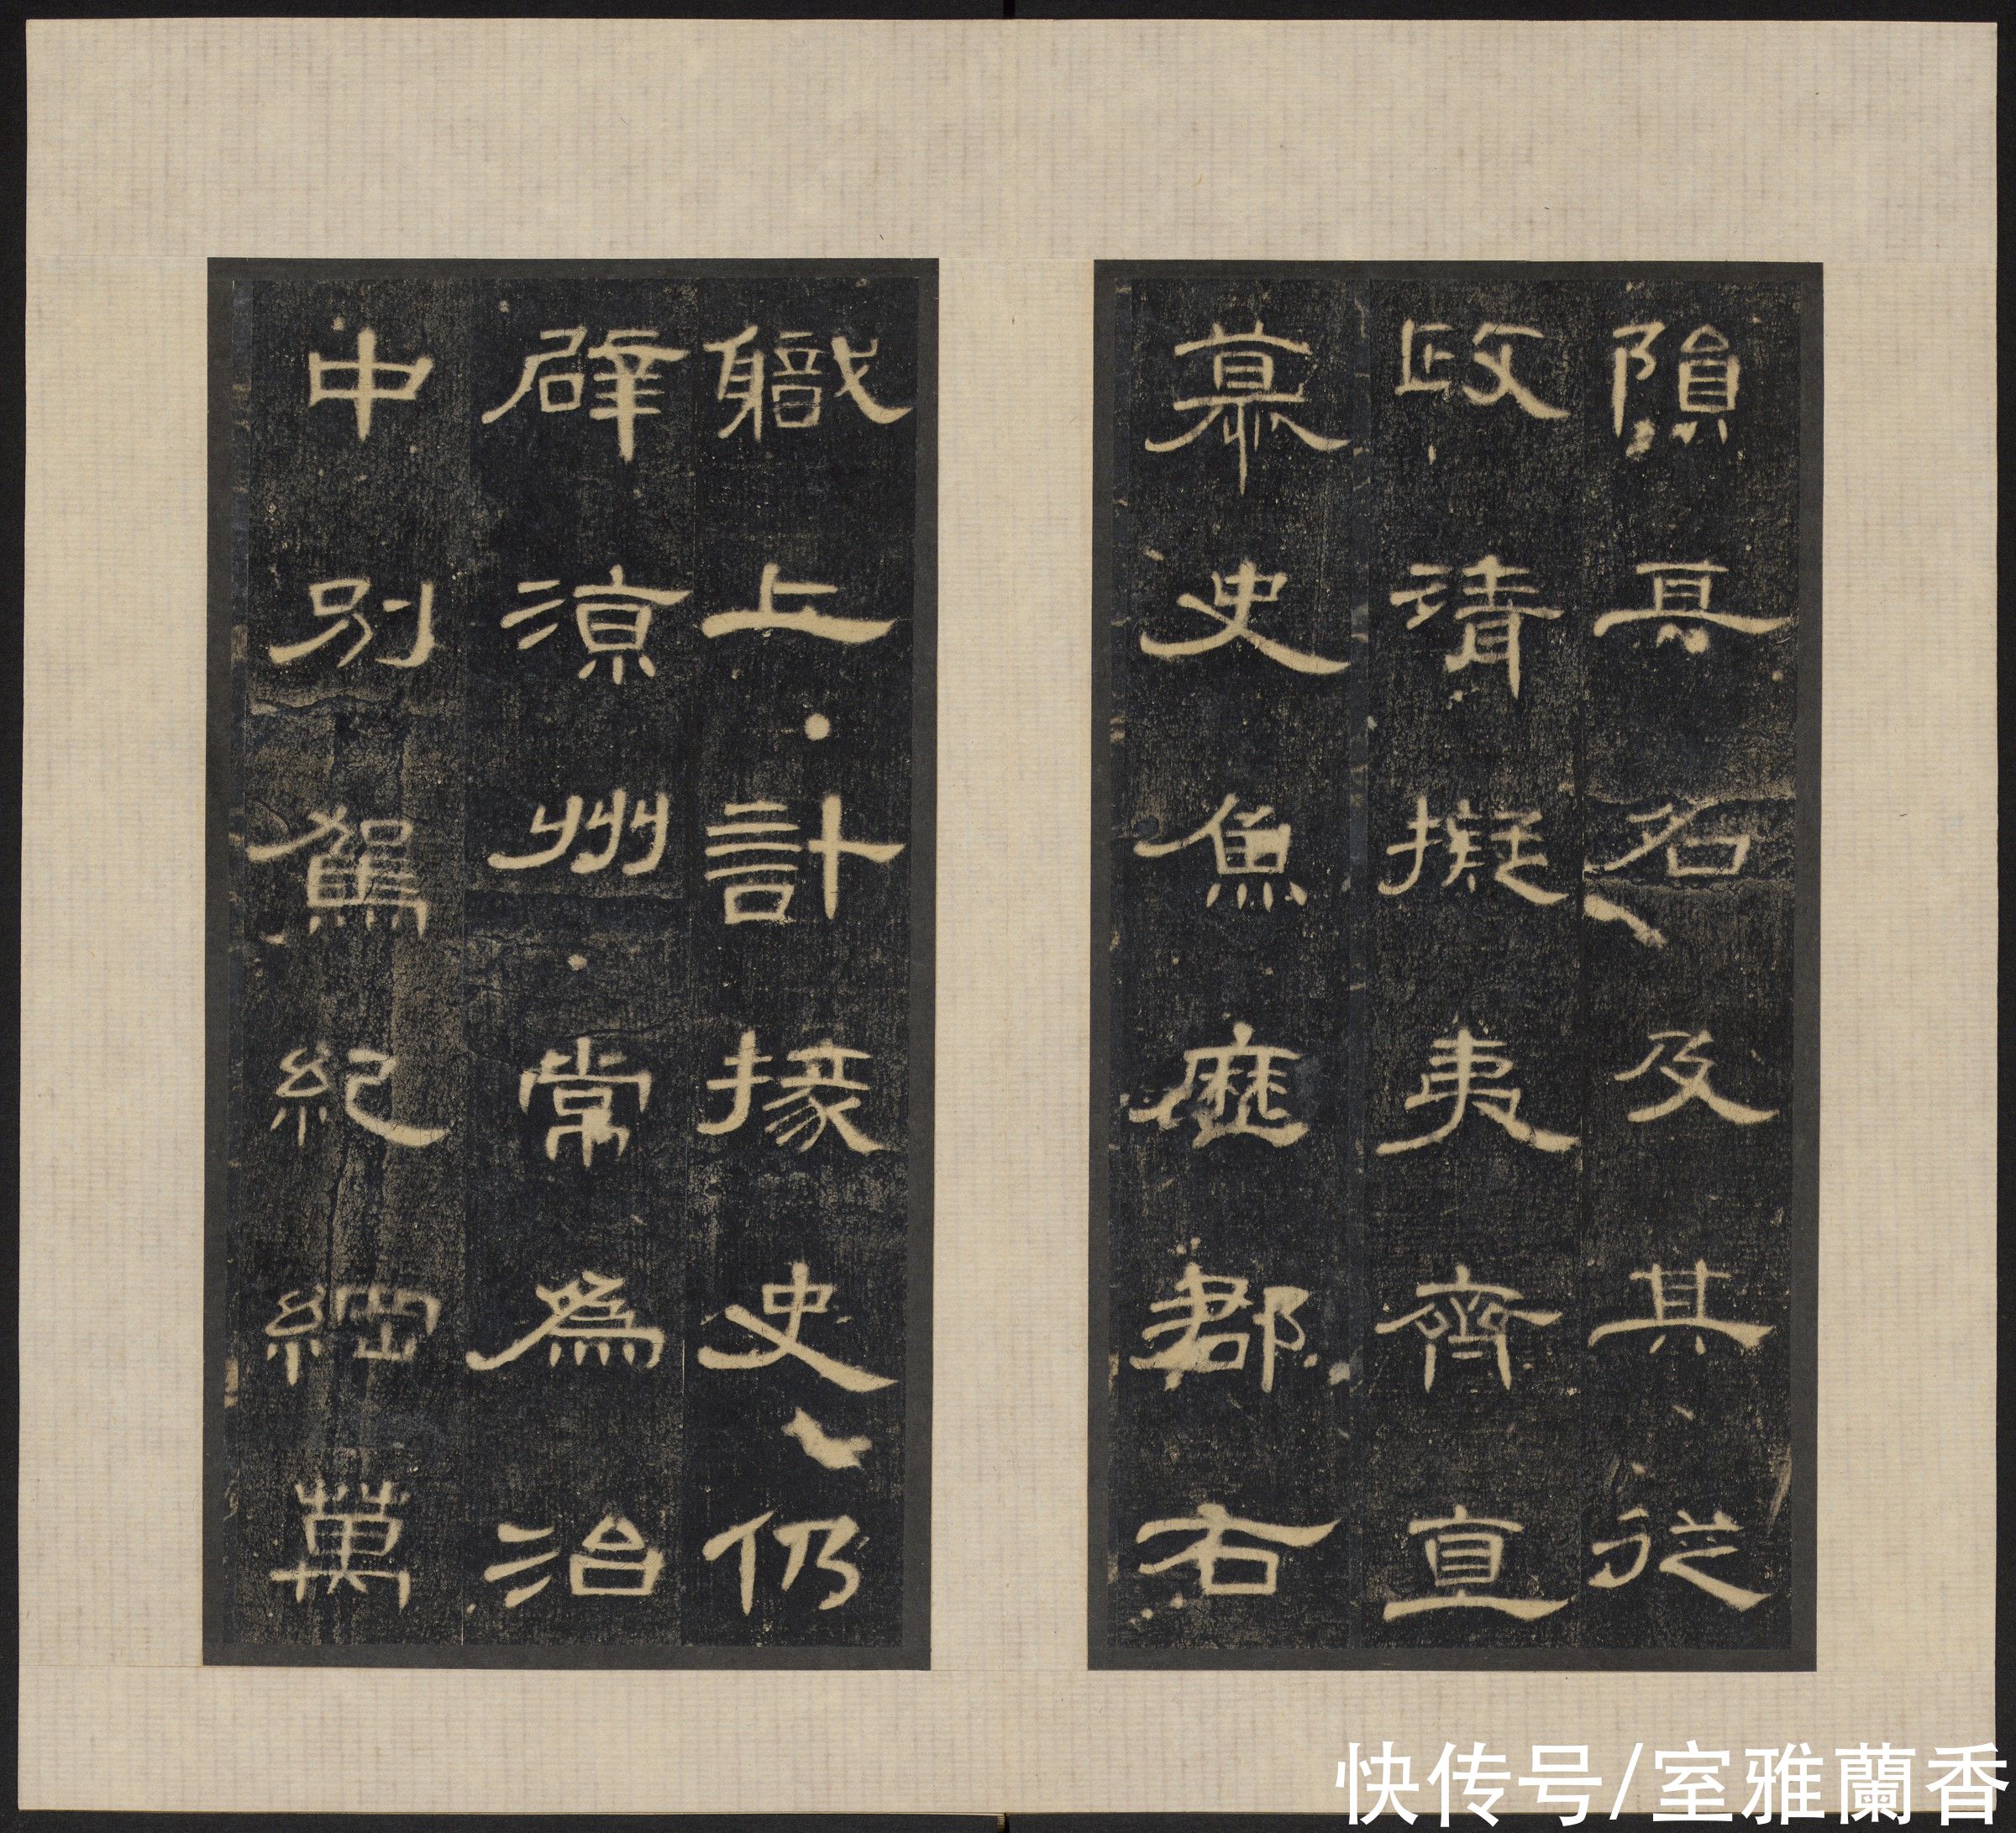 隕其名及其從
政清擬夷齊直
慕史魚歷郡右
職上計掾史仍
辟涼州常為治
中別駕紀綱萬
快传号/室雅蘭香